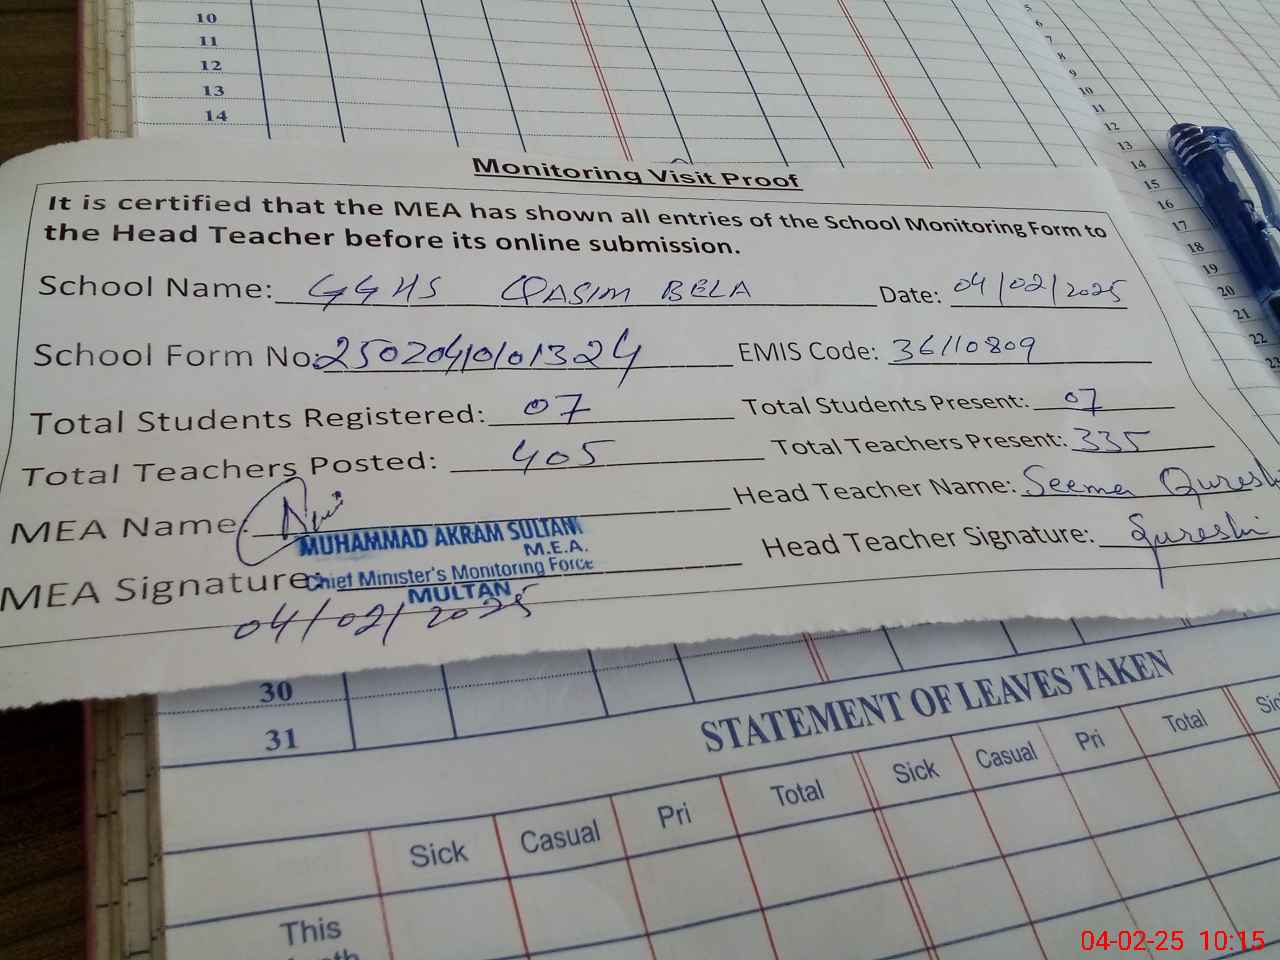 10
11
12
13
14
5
6
7
8
9
10
11
12
13
14
15
16
17
18
19
20
21
22
23
Monitoring Visit Proof
It is certified that the MEA has shown all entries of the School Monitoring Form to
the Head Teacher before its online submission.
School Name: GGHS QASIM BELA Date: 04/02/2025
School Form No: 25020410101324 EMIS Code: 36110809
Total Students Registered: 07 Total Students Present: 07
Total Teachers Posted: 405 Total Teachers Present: 335
MEA Name: Head Teacher Name: Seema Qureshi
MUHAMMAD AKRAM SULTAN
M.E.A.
MEA Signature: Head Teacher Signature: Qureshi
Chief Minister's Monitoring Force
MULTAN
04/02/2025
30
31
STATEMENT OF LEAVES TAKEN
Sick Casual Pri Total Sick Casual Pri Total
This
04-02-25 10:15